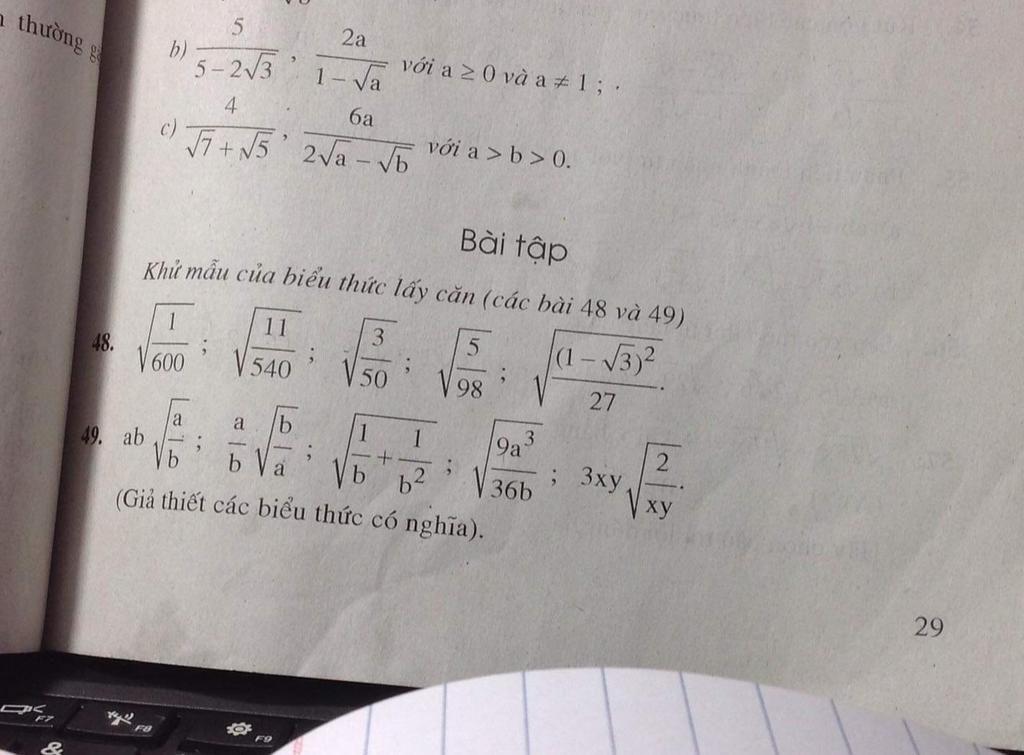 thường
b) 5/(5 − 2√3) , 2a/(1 − √a) với a ≥ 0 và a ≠ 1 ;
c) 4/(√7 + √5) , 6a/(2√a − √b) với a > b > 0.
Bài tập
Khử mẫu của biểu thức lấy căn (các bài 48 và 49)
48. √(1/600) ; √(11/540) ; √(3/50) ; √(5/98) ; √((1 − √3)²/27).
49. ab √(a/b) ; a/b √(b/a) ; √(1/b + 1/b²) ; √(9a³/36b) ; 3xy √(2/xy).
(Giả thiết các biểu thức có nghĩa).
29
F7 F8 F9
&